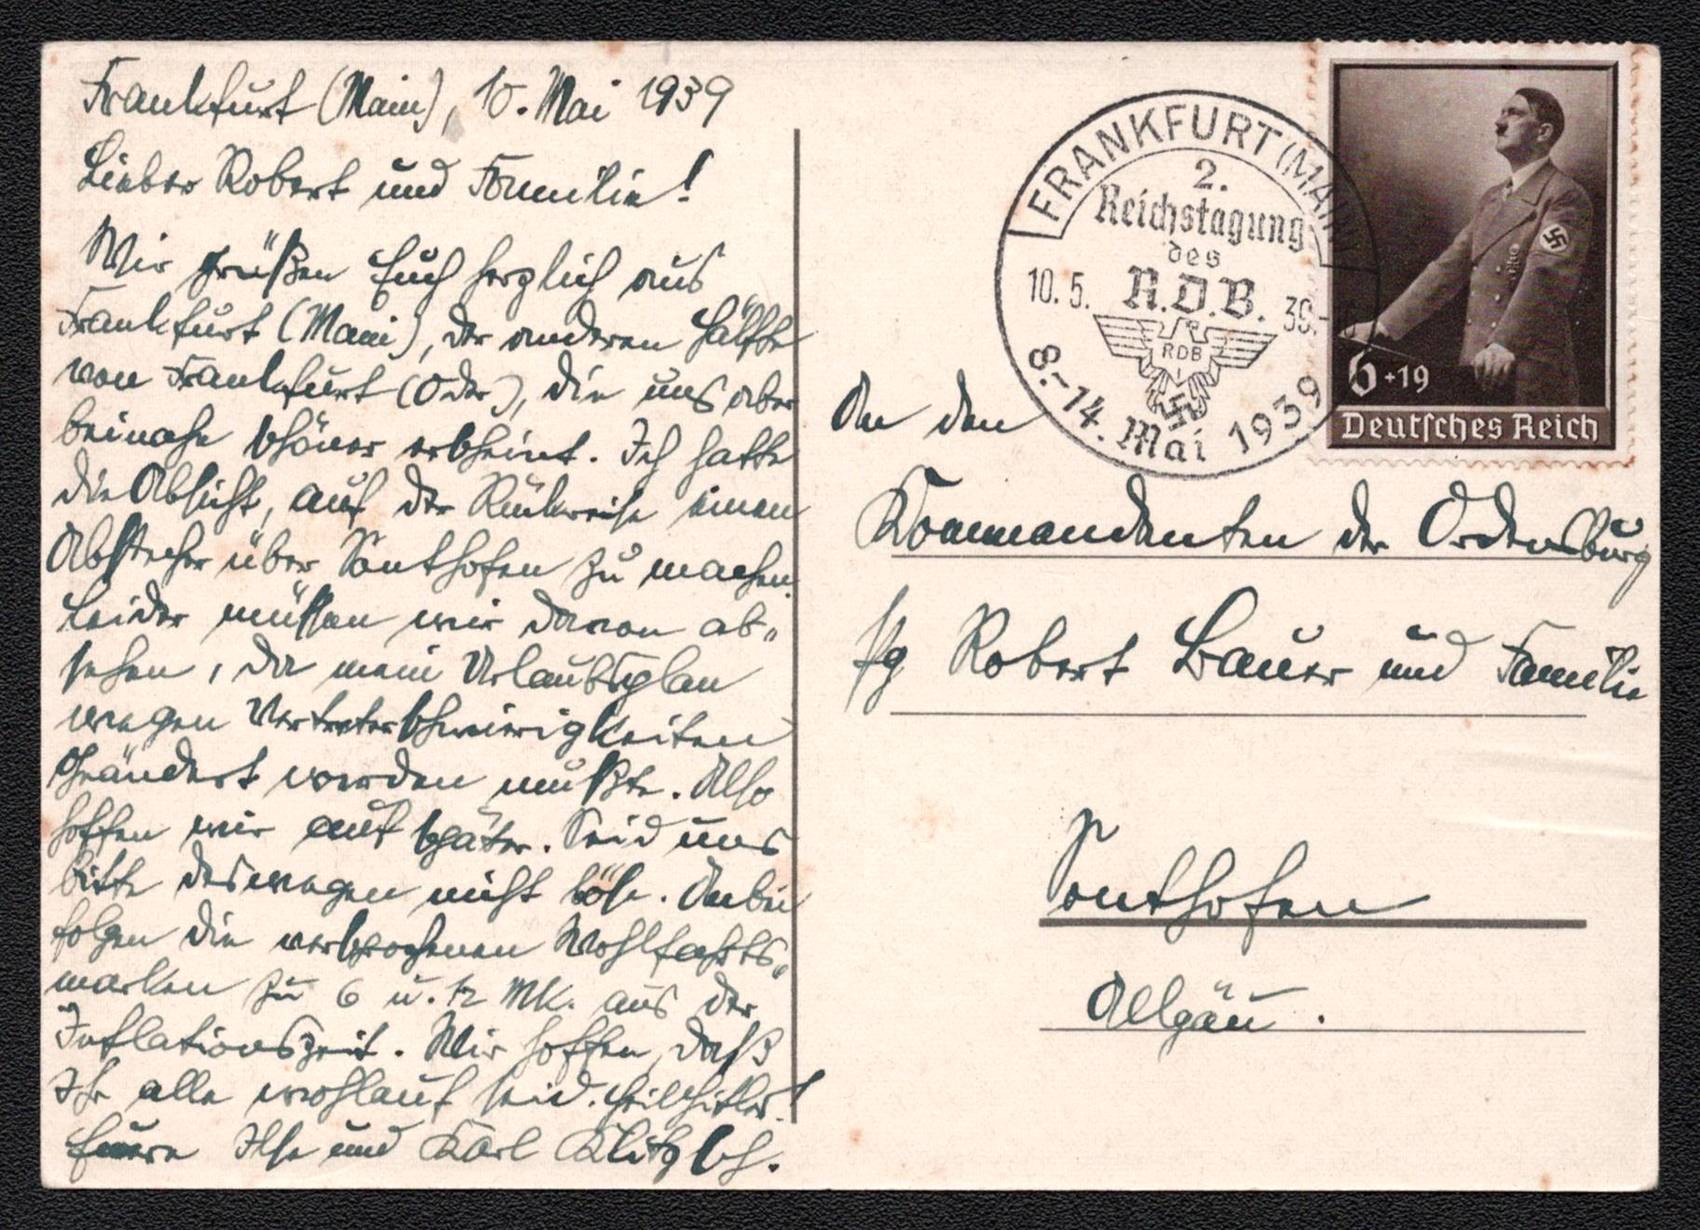 Frankfurt (Main), 10. Mai 1939
Lieber Robert und Familie!
Wir grüßen Euch herzlich aus
Frankfurt (Main), der anderen Hälfte
von Frankfurt (Oder), die uns aber
beinahe schöner erscheint. Ich hatte
die Absicht, auf der Rückreise einen
Abstecher über Sonthofen zu machen.
Leider müssen wir davon ab-
sehen, da mein Urlaubsplan
wegen Vertreterschwierigkeiten
geändert werden mußte. Also
hoffen wir auf später. Seid uns
bitte deswegen nicht böse. Anbei
folgen die versprochenen Wohlfahrts-
marken zu 6 u. 12 Mk. aus der
Inflationszeit. Wir hoffen, daß
Ihr alle wohlauf seid. Heil Hitler!
Euere Ilse und Karl
FRANKFURT (MAIN)
2.
Reichstagung
des
R.D.B.
10. 5. 39.
RDB
8.-14. Mai 1939
6+19
Deutsches Reich
An den
Kommandanten der Ordensburg
Pg Robert Bauer und Familie
Sonthofen
Allgäu.